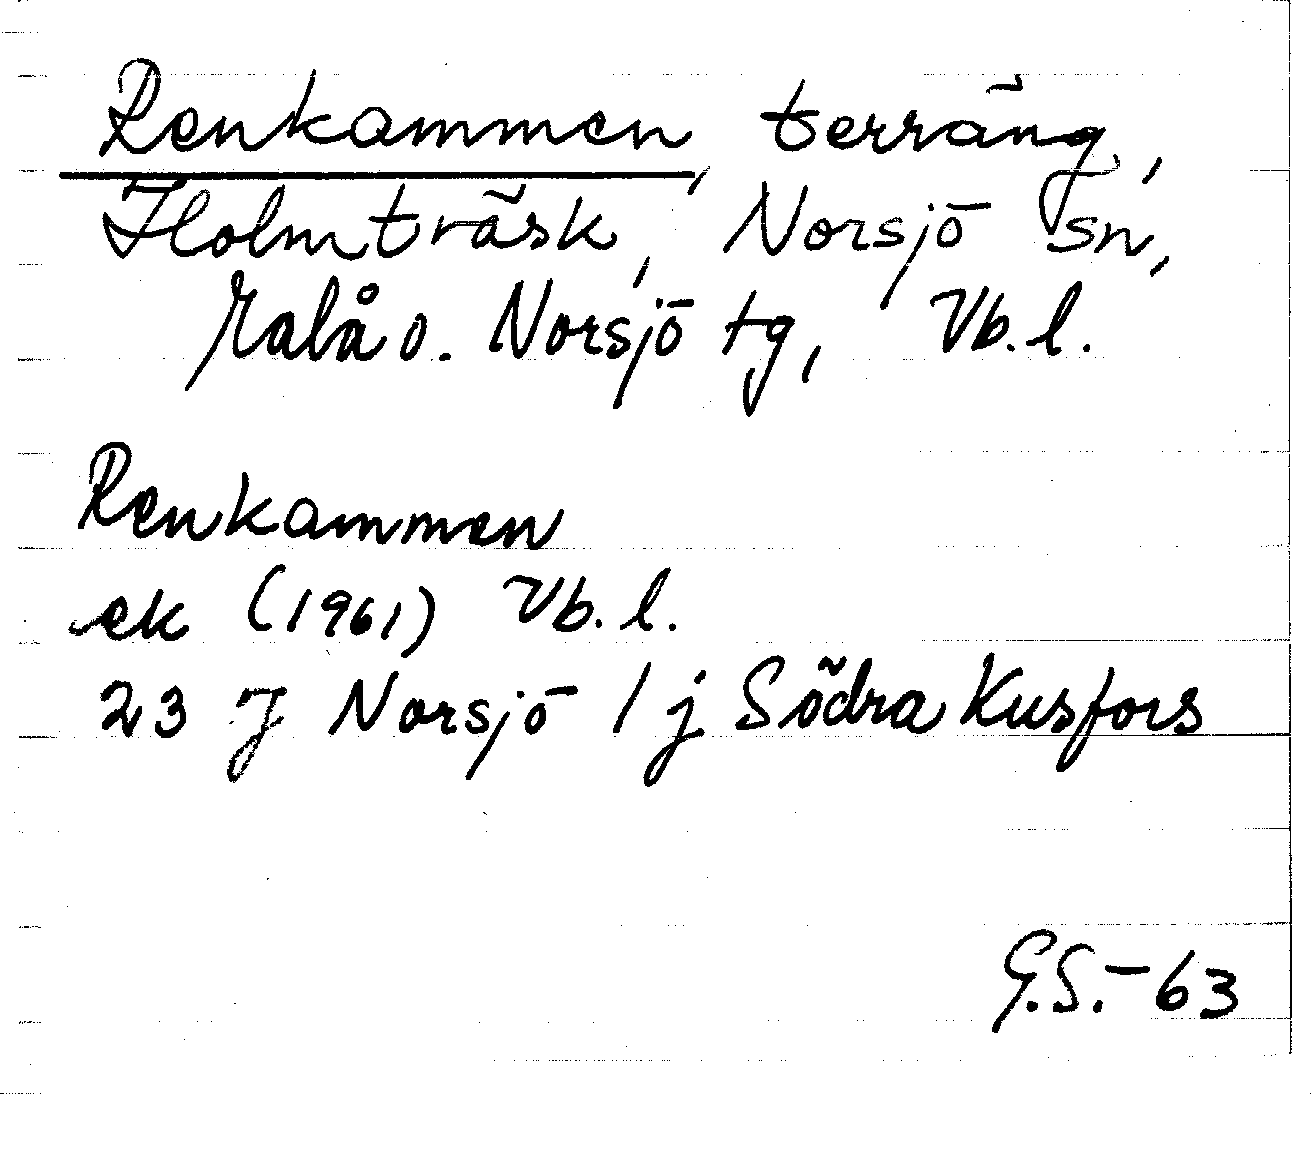 Renkammen, terräng,
Holmträsk, Norsjö sn,
Malå o. Norsjö tg, Vb. l.
Renkammen
ek (1961) Vb. l.
23 J Norsjö / j Södra Kusfors
G.S.-63